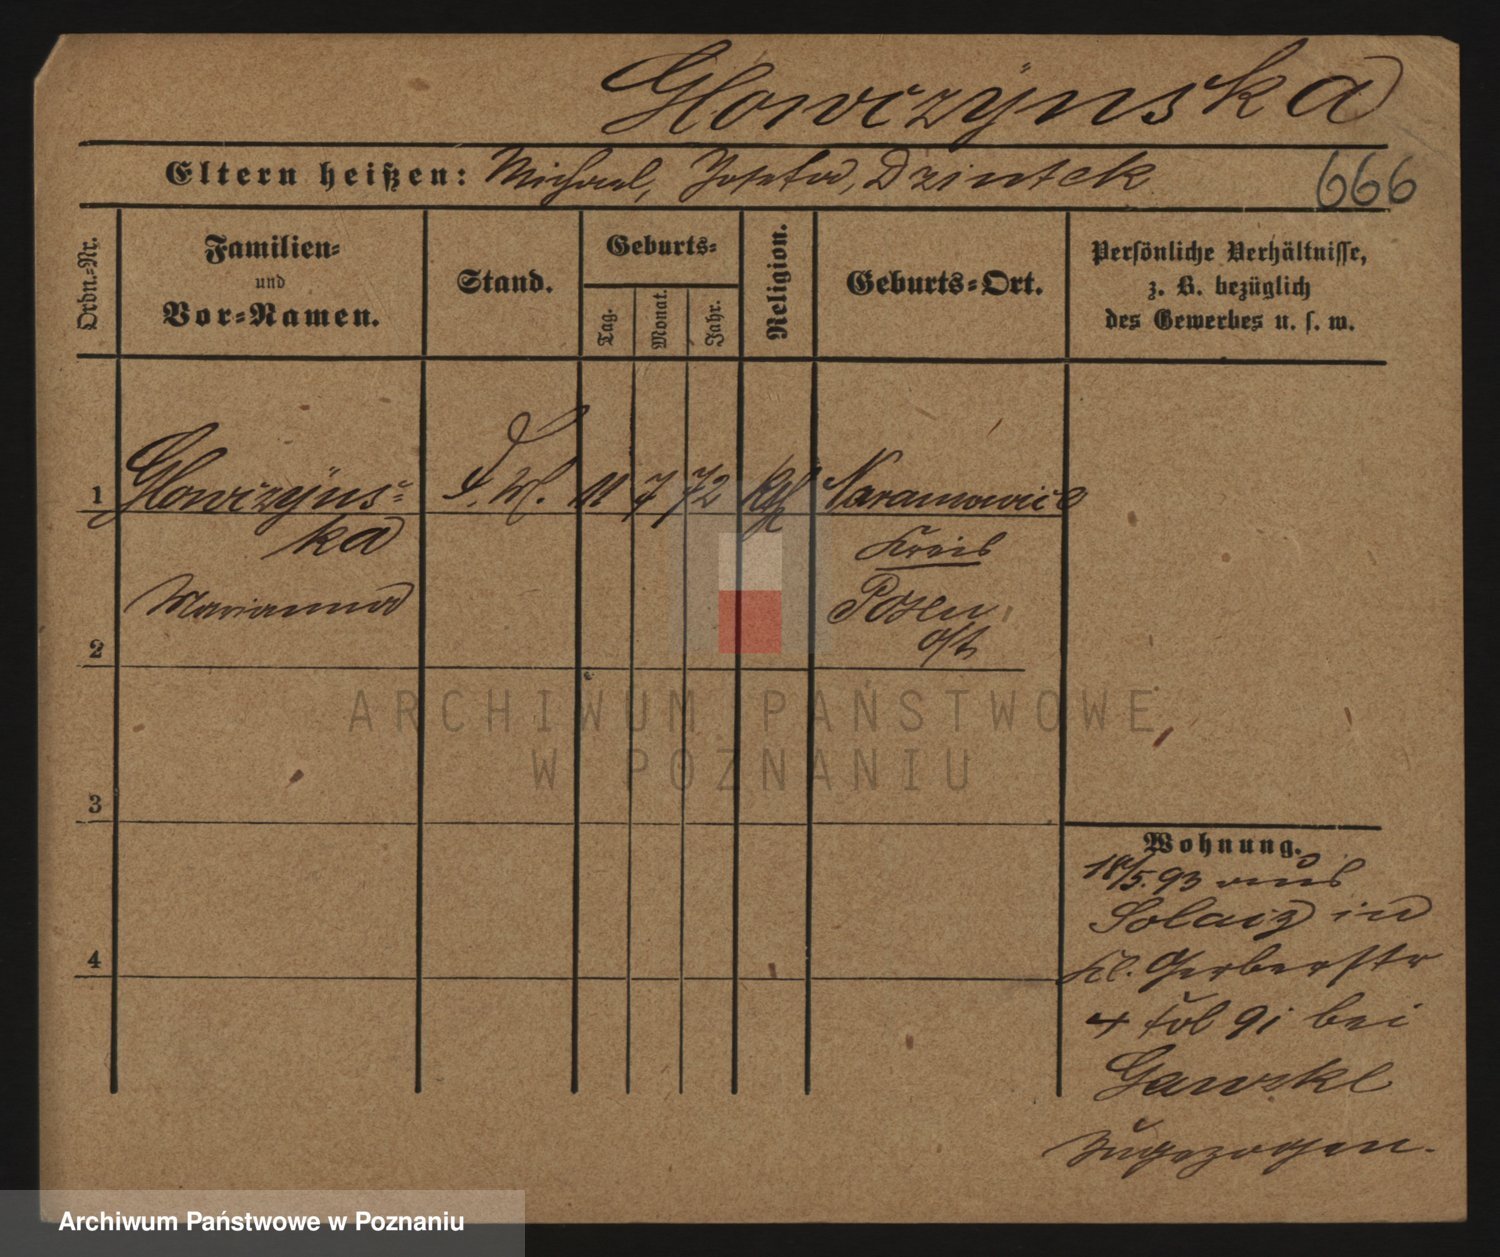 Glowczynska
Eltern heißen: Michael, Josefa, Dzintek
666
Ordn.-Nr.
Familien-
und
Vor-Namen.
Stand.
Geburts-
Tag.
Monat.
Jahr.
Religion.
Geburts-Ort.
Persönliche Verhältnisse,
z. B. bezüglich
des Gewerbes u. s. w.
1 Glowczyns- 11 7 72 kth Naramowice
ka Kreis
Marianna Posen
2 Ost
ARCHIWUM PAŃSTWOWE
W POZNANIU
3
Wohnung.
18/5.93 aus
Solacz in
Kl. Gerberstr
4 bei
4
Zugezogen.
Archiwum Państwowe w Poznaniu